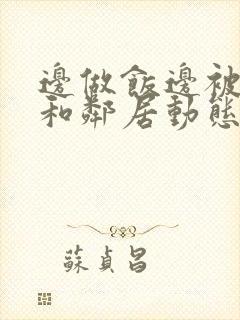 邊做飯邊被
和鄰居動態
蘇貞昌